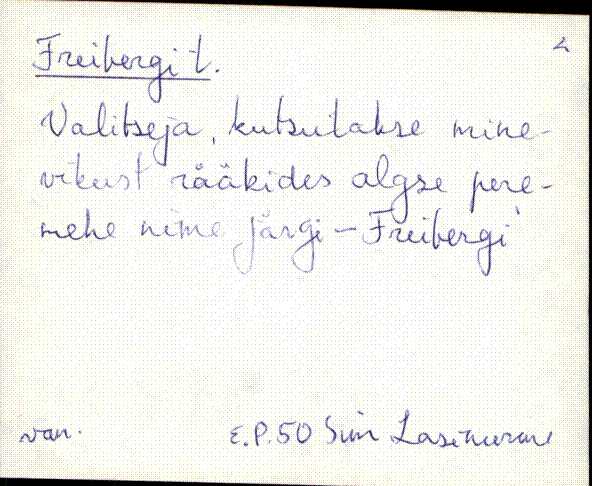 Freibergi t.
Valitseja, kutsutakse mine-
vikust rääkides algse pere-
mehe nime järgi – Freibergi
van. E.P.50 Sim Lasinurme